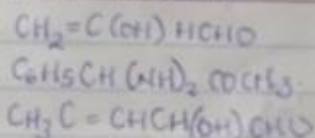 CH₂=C(OH) HCHO
C₆H₅CH (NH)₂ COCH₃
CH₃C = CHCH(OH) CHO